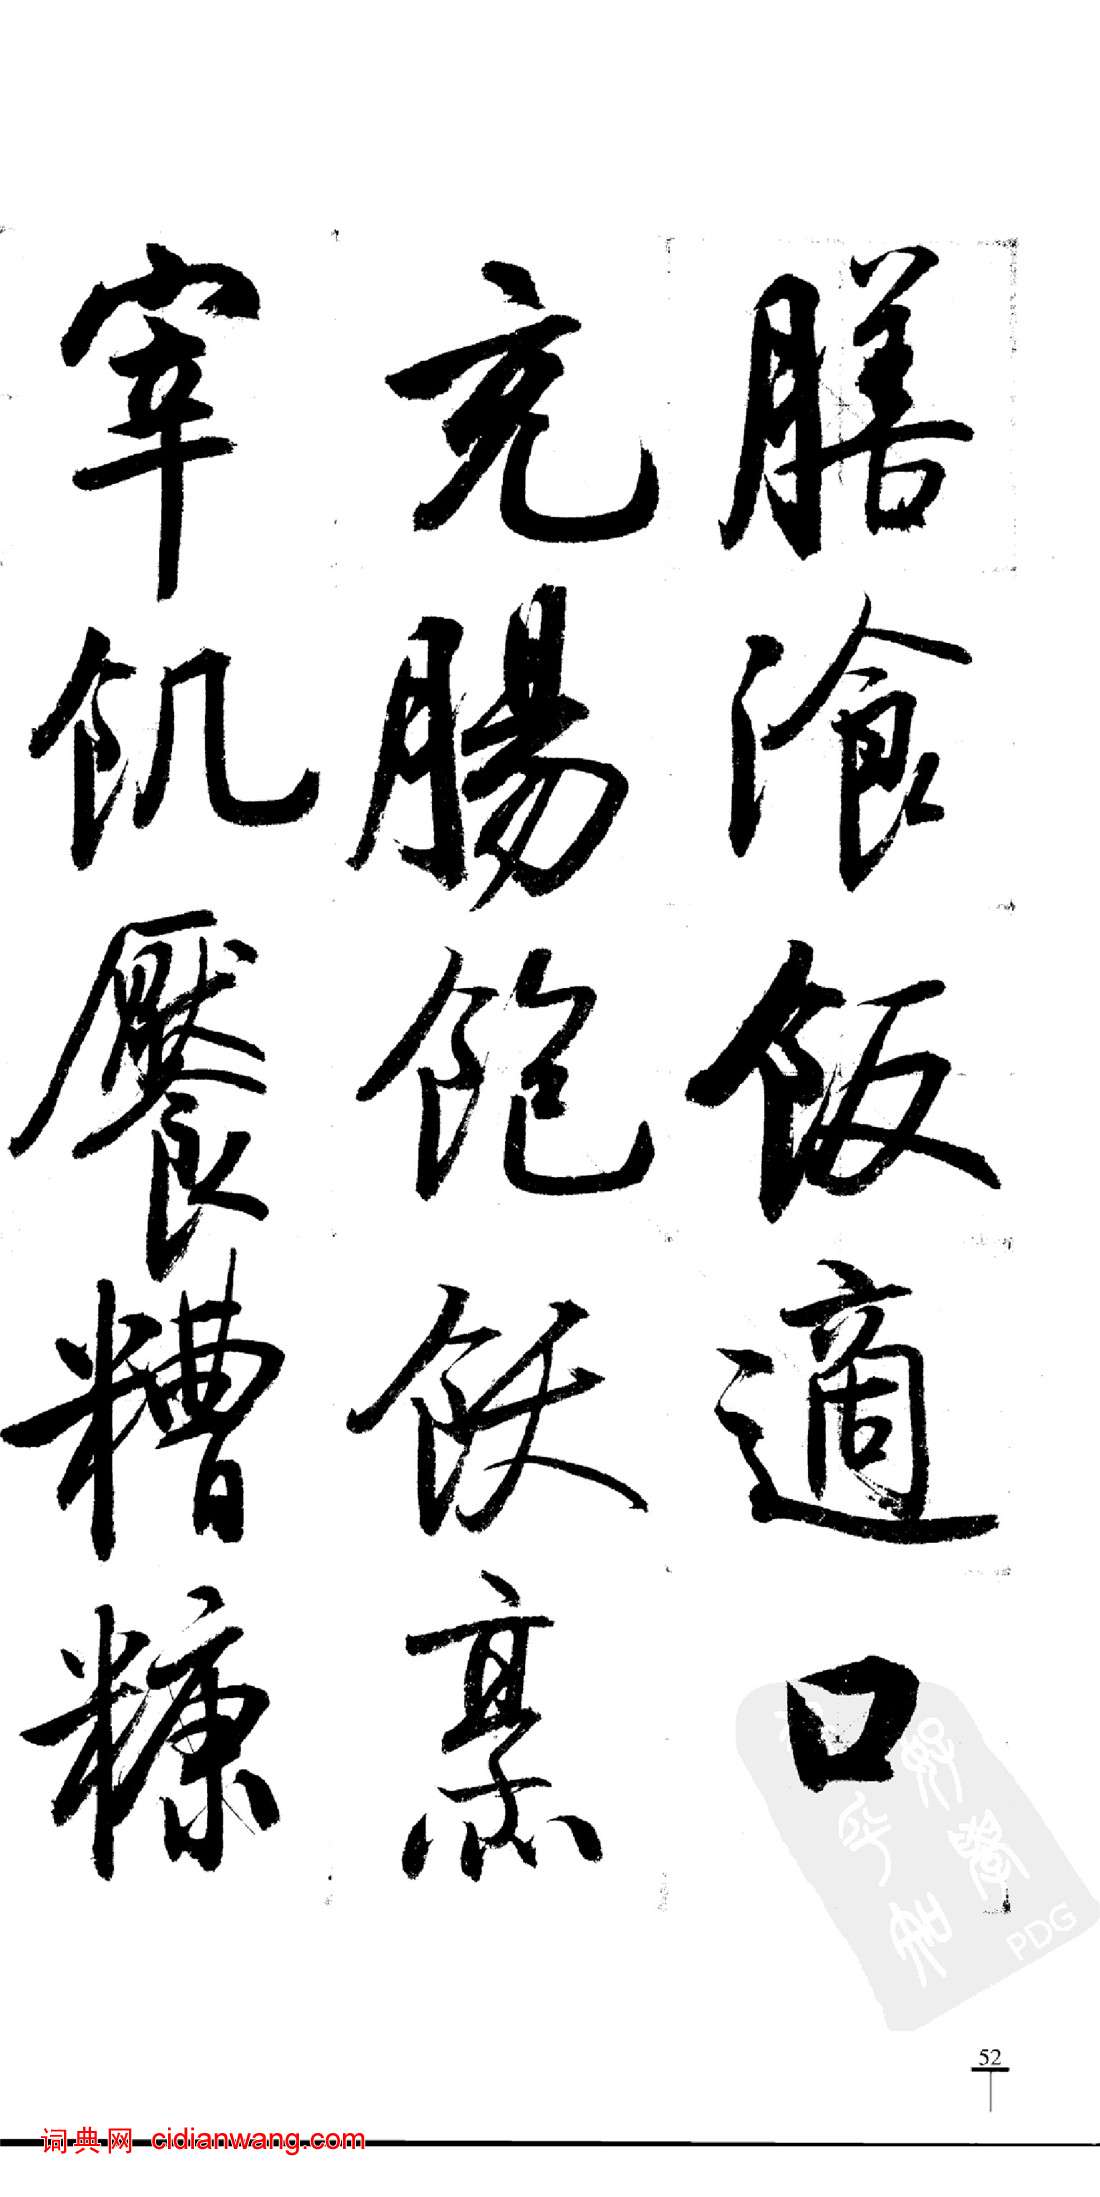 膳飡飯適口
充腸飽飫烹
宰飢饜糟糠
52
词典网 cidianwang.com
PDG